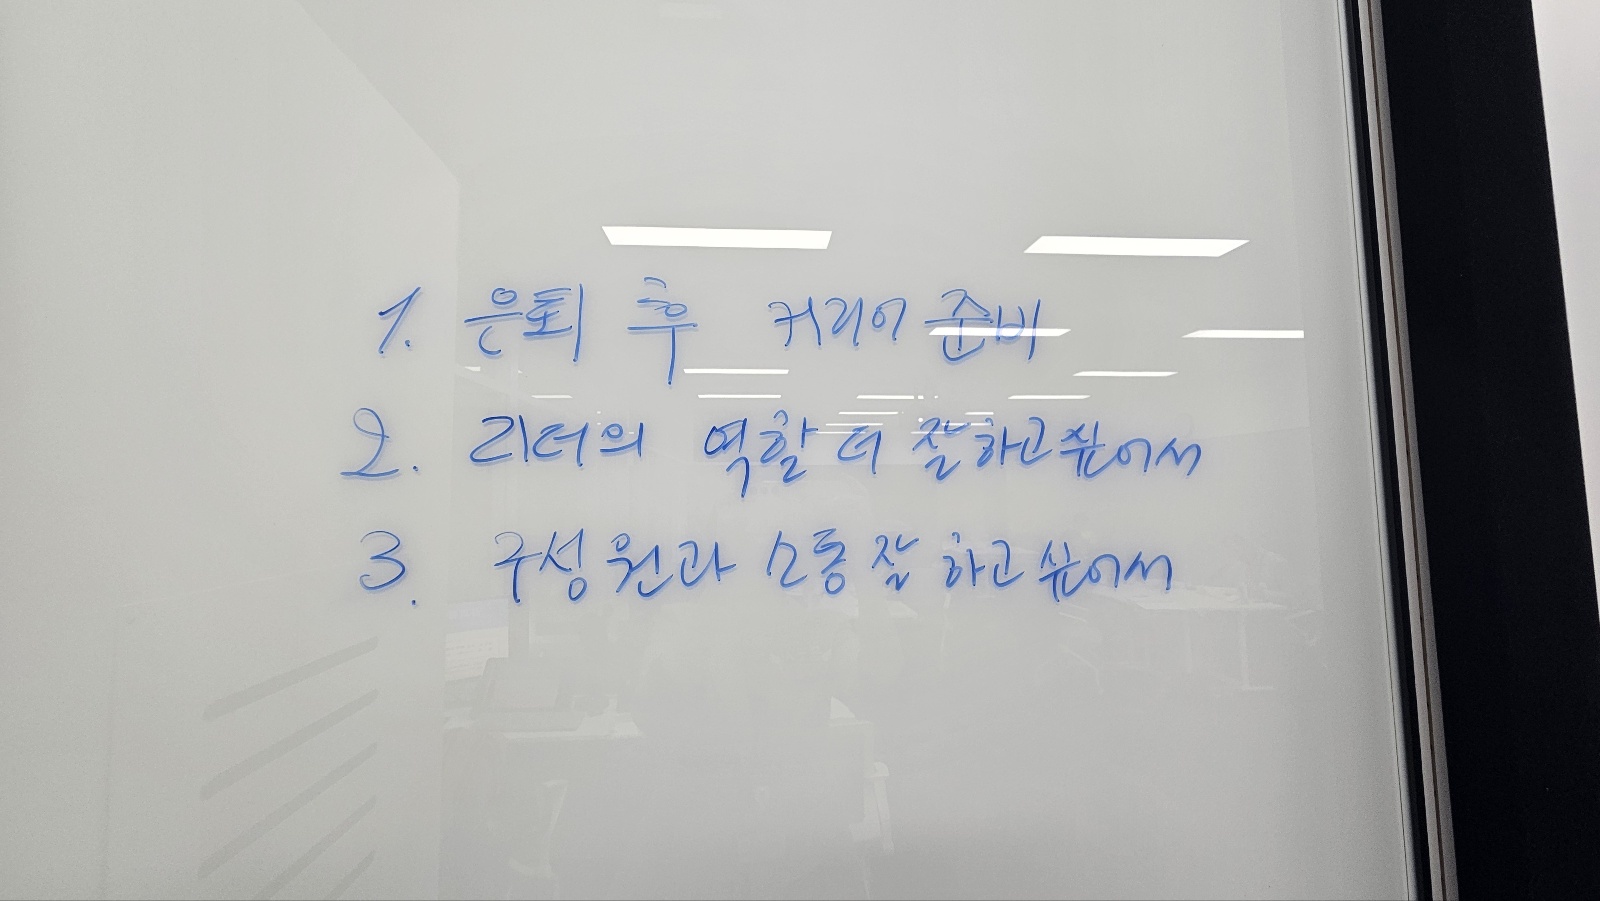 1. 은퇴 후 커리어 준비
2. 리더의 역할 더 잘하고 싶어서
3. 구성원과 소통 잘 하고 싶어서